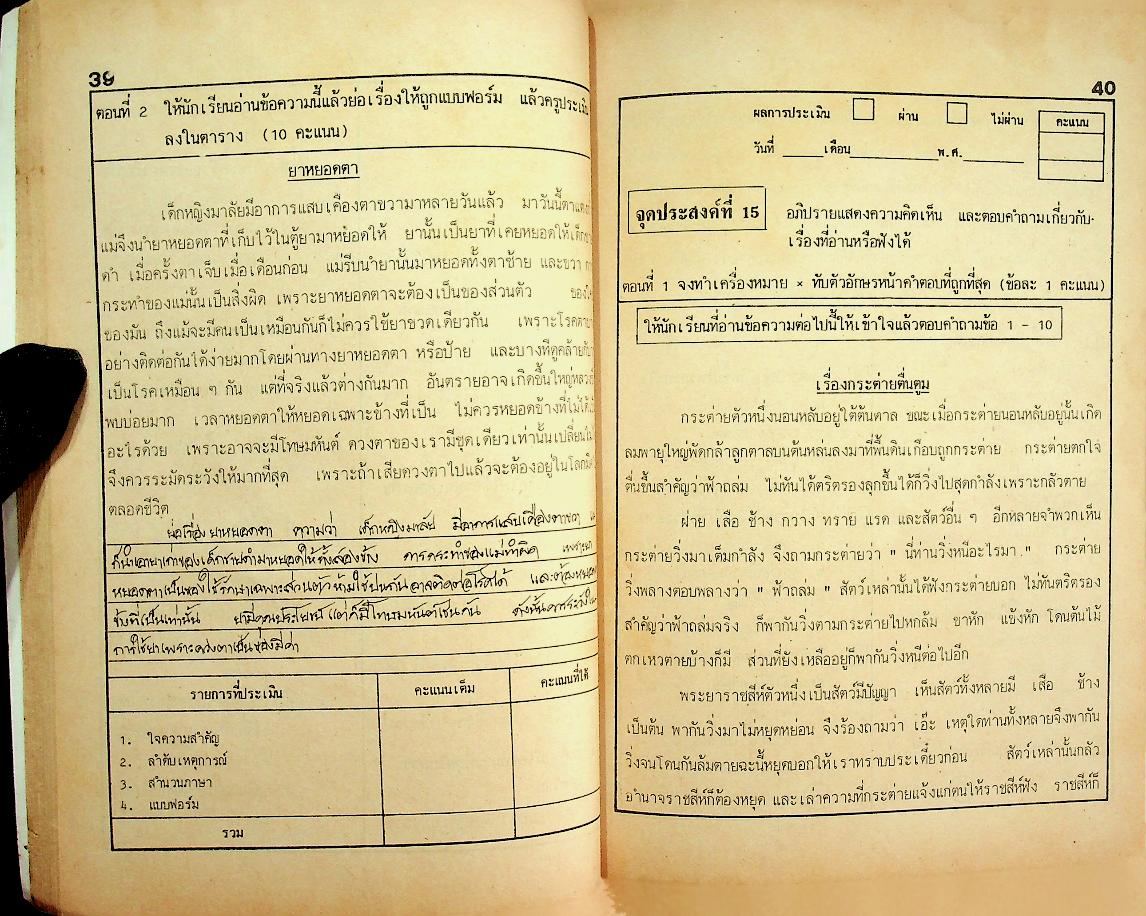 39
ตอนที่ 2 ให้นักเรียนอ่านข้อความนี้แล้วย่อเรื่องให้ถูกแบบฟอร์ม แล้วครูประเมิน
ลงในตาราง (10 คะแนน)
ยาหยอดตา
เด็กหญิงมาลัยมีอาการแสบเคืองตาขวามาหลายวันแล้ว มาวันนี้ตาแดง
แม่จึงนำยาหยอดตาที่เก็บไว้ในตู้ยามาหยอดให้ ยานั้นเป็นยาที่เคยหยอดให้เด็กชาย
ดำ เมื่อครั้งตาเจ็บเมื่อเดือนก่อน แม่รีบนำยานั้นมาหยอดทั้งตาซ้าย และขวา
กระทำของแม่นั้นเป็นสิ่งผิด เพราะยาหยอดตาจะต้องเป็นของส่วนตัว
ของมัน ถึงแม้จะมีคนเป็นเหมือนกันก็ไม่ควรใช้ยาขวดเดียวกัน เพราะโรคตาบาง
อย่างติดต่อกันได้ง่ายมากโดยผ่านทางยาหยอดตา หรือป้าย และบางทีดูคล้ายกับ
เป็นโรคเหมือน ๆ กัน แต่ที่จริงแล้วต่างกันมาก อันตรายอาจเกิดขึ้นใหญ่หลวง
พบบ่อยมาก เวลาหยอดตาให้หยอดเฉพาะข้างที่เป็น ไม่ควรหยอดข้างที่ไม่ได้เป็น
อะไรด้วย เพราะอาจจะมีโทษมหันต์ ดวงตาของเรามีชุดเดียวเท่านั้นเปลี่ยนไม่
จึงควรระมัดระวังให้มากที่สุด เพราะถ้าเสียดวงตาไปแล้วจะต้องอยู่ในโลกมืด
ตลอดชีวิต
ย่อเรื่องยาหยอดตา ความว่า เด็กหญิงมาลัย มีอาการแสบเคืองตาขวา
ก็นำเอายาเก่าของเด็กชายดำมาหยอดให้ทั้งสองข้าง การกระทำของแม่ทำผิด เพราะยา
หยอดตาเป็นของใช้รักษาเฉพาะส่วนตัว ห้ามใช้ปนกันอาจติดต่อโรคได้ และต้องหยอด
ข้างที่เป็นเท่านั้น ยามีคุณประโยชน์ แต่ก็มีโทษมหันต์เช่นกัน ดังนั้นควรระวังใน
การใช้ยาเพราะดวงตาเป็นของมีค่า
รายการที่ประเมิน คะแนนเต็ม คะแนนที่ได้
1. ใจความสำคัญ
2. ลำดับเหตุการณ์
3. สำนวนภาษา
4. แบบฟอร์ม
รวม
40
ผลการประเมิน ผ่าน ไม่ผ่าน คะแนน
วันที่ เดือน พ.ศ.
จุดประสงค์ที่ 15 อภิปรายแสดงความคิดเห็น และตอบคำถามเกี่ยวกับ
เรื่องที่อ่านหรือฟังได้
ตอนที่ 1 จงทำเครื่องหมาย × ทับตัวอักษรหน้าคำตอบที่ถูกที่สุด (ข้อละ 1 คะแนน)
ให้นักเรียนที่อ่านข้อความต่อไปนี้ให้เข้าใจแล้วตอบคำถามข้อ 1 - 10
เรื่องกระต่ายตื่นตูม
กระต่ายตัวหนึ่งนอนหลับอยู่ใต้ต้นตาล ขณะเมื่อกระต่ายนอนหลับอยู่นั้นเกิด
ลมพายุใหญ่พัดกล้าลูกตาลบนต้นหล่นลงมาที่พื้นดินเกือบถูกกระต่าย กระต่ายตกใจ
ตื่นขึ้นสำคัญว่าฟ้าถล่ม ไม่ทันได้ตริตรองลุกขึ้นได้ก็วิ่งไปสุดกำลังเพราะกลัวตาย
ฝ่าย เสือ ช้าง กวาง ทราย แรด และสัตว์อื่น ๆ อีกหลายจำพวกเห็น
กระต่ายวิ่งมาเต็มกำลัง จึงถามกระต่ายว่า " นี่ท่านวิ่งหนีอะไรมา " กระต่าย
วิ่งพลางตอบพลางว่า " ฟ้าถล่ม " สัตว์เหล่านั้นได้ฟังกระต่ายบอก ไม่ทันตริตรอง
สำคัญว่าฟ้าถล่มจริง ก็พากันวิ่งตามกระต่ายไปหกล้ม ขาหัก แข้งหัก โดนต้นไม้
ตกเหวตายบ้างก็มี ส่วนที่ยังเหลืออยู่ก็พากันวิ่งหนีต่อไปอีก
พระยาราชสีห์ตัวหนึ่งเป็นสัตว์มีปัญญา เห็นสัตว์ทั้งหลายมี เสือ ช้าง
เป็นต้น พากันวิ่งมาไม่หยุดหย่อน จึงร้องถามว่า เอ๊ะ เหตุใดท่านทั้งหลายจึงพากัน
วิ่งจนโดนกันล้มตายฉะนี้หยุดบอกให้เราทราบประเดี๋ยวก่อน สัตว์เหล่านั้นกลัว
อำนาจราชสีห์ก็ต้องหยุด และเล่าความที่กระต่ายแจ้งแก่ตนให้ราชสีห์ฟัง ราชสีห์ก็